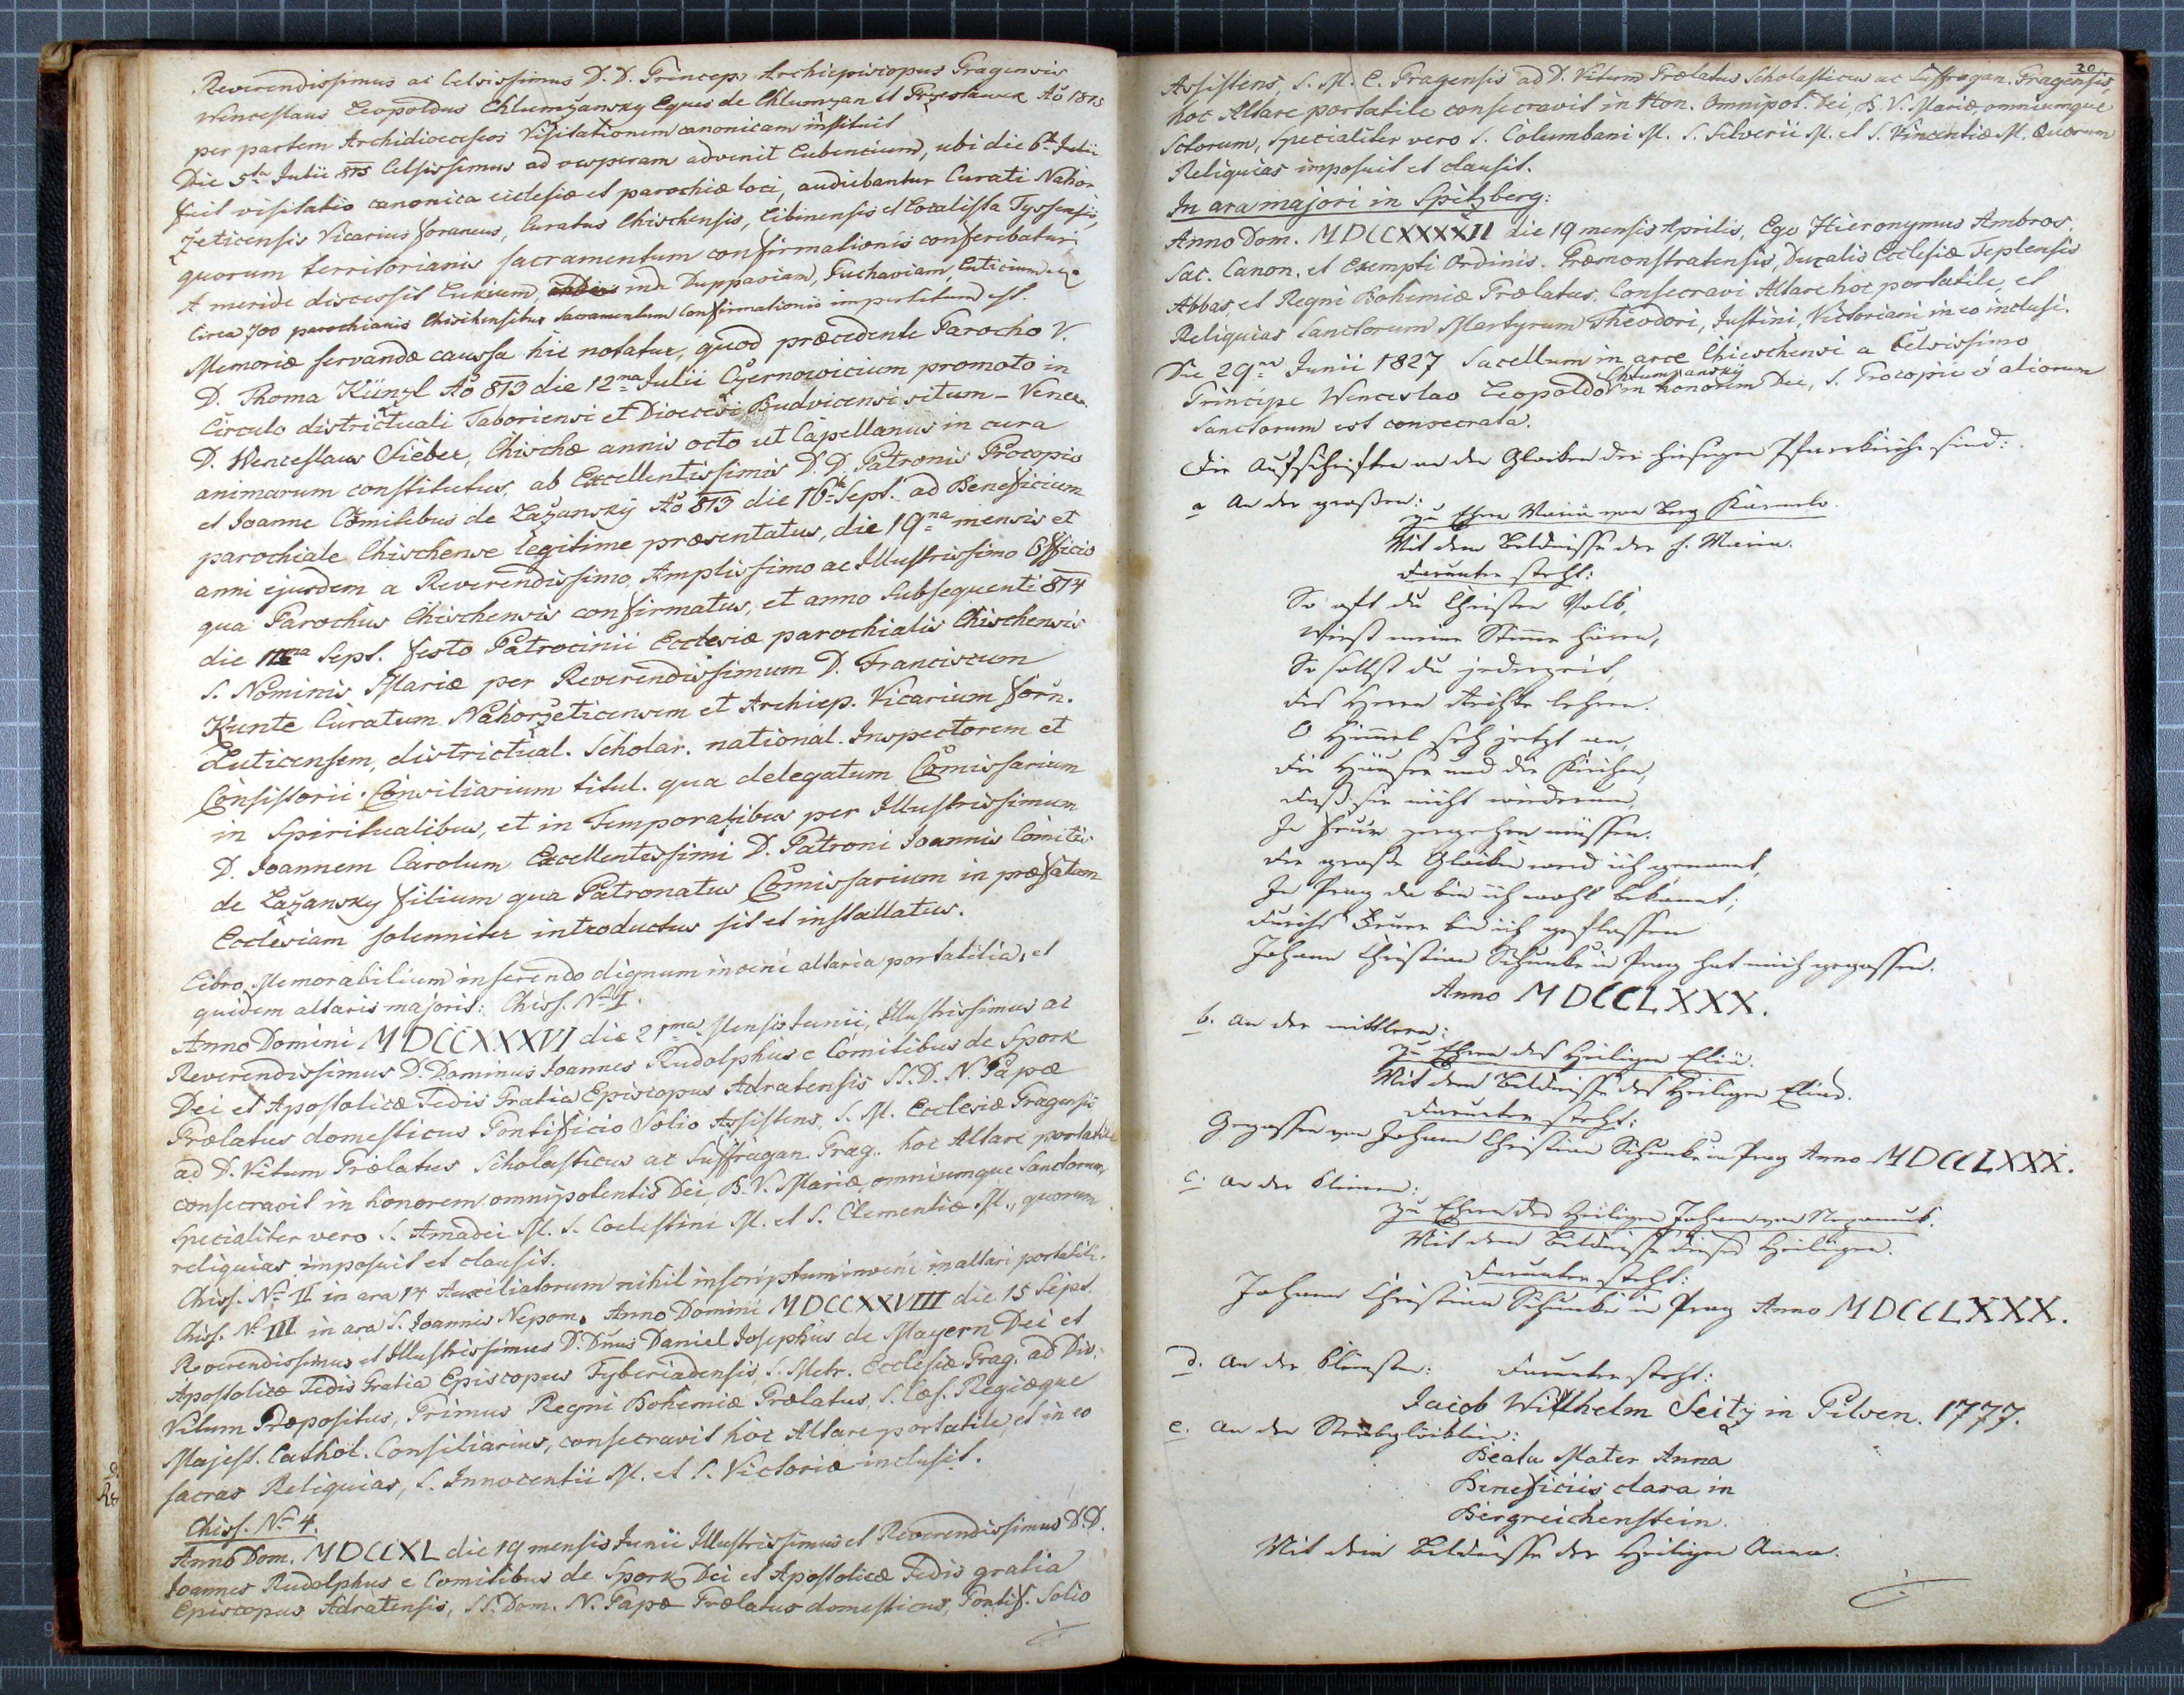 Reverendissimus ac Celsissimus D. D. Princeps Archiepiscopus Pragensis
Wenceslaus Leopoldus Chlumčansky Eques de Chlumčan et Přestawlk Aõ 1815
per partem Archidioeceseos Visitationem canonicam instituit
Die 5ta Julii 815 Celsissimus ad vesperam advenit Lubencium, ubi die 6ta Julii
fuit visitatio canonica ecclesiæ et parochiæ loci, audiebantur Curati Nahor-
žeticensis Vicarius foraneus, Curatus Chischensis, Libinensis et Localista Tyssensis,
quorum territorianis sacramentum confirmationis conferebatur.
A meride discessit Lukium, inde Duppaviam, Puchaviam, Luticium
Circa 700 parochianis Chischensibus Sacramentum Confirmationis impertitum est.
Memoriæ servandæ caussa hic notatur, quod præcedente Parocho V.
D. Thoma Künzl Aõ 813 die 12ma Julii Czernowicium promoto in
Circulo districtuali Taboriensi et Dioecesi Budvicensi situm – Vener.
D. Wenceslaus Sieber, Chischæ annis octo ut Capellanus in cura
animarum constitutus, ab Excellentissimis D. D. Patronis Procopio
et Joanne Comitibus de Lažansky Aõ 813 die 16ta Sept. ad Beneficium
parochiale Chischense legitime præsentatus, die 19na mensis et
anni ejusdem a Reverendissimo, Amplissimo ac Illustrissimo Officio
qua Parochus Chischensis confirmatus, et anno subsequenti 814
die 11ma Sept. festo Patrocinii Ecclesiæ parochialis Chischensis
S. Nominis Mariæ per Reverendissimum D. Franciscum
Kunte Curatum Nahoržeticensem et Archiep. Vicarium forn.
Luticensem, districtual. Scholar. national. Inspectorem et
Consistorii Consiliarium titul. qua delegatum Comissarium
in Spiritualibus, et in Temporalibus per Illustrissimum
D. Joannem Carolum Excellentissimi D. Patroni Joannis Comitis
de Lažansky filium qua Patronatus Comissarium in præfatam
Ecclesiam solenniter introductus sit et installatus.
Libro Memorabilium inserendo dignum inveni altaria portatilia, et
quidem altaris majoris: Chiss. No I.
Anno Domini MDCCXXXVI die 21ma Mensis Junii, Illustrissimus ac
Reverendissimus D. Dominus Joannes Rudolphus e Comitibus de Spork
Dei et Apostolicæ Sedis Gratia Episcopus Adratensis SS. D. N. Papæ
Prælatus domesticus Pontificio Solio Assistens, S. M. Ecclesiæ Pragensis
ad D. Vitum Prælatus Scholasticus ac Suffragan. Prag. hoc Altare portatile
consecravit in honorem omnipotentis Dei, B. V. Mariæ, omniumque Sanctorum,
Specialiter vero S. Amadei M. S. Coelestini M. et S. Clementiæ M., quorum
reliquias imposuit et clausit.
Chiss. No II in ara 14 Auxiliatorum nihil inscriptum inveni in altari portatili.
Chiss. No III in ara S. Joannis Nepom. Anno Domini MDCCXXVIII die 15 Sept.
Reverendissimus et Illustrissimus D. Dnus Daniel Josephus de Mayern Dei et
Apostolicæ Sedis Gratia Episcopus Tyberiadensis, S. Metr. Ecclesiæ Prag. ad Div.
Vitum Præpositus, Primus Regni Bohemiæ Prælatus, S. Cæs. Regiæque
Majest. Cathol. Consiliarius, consecravit hoc Altare portatile, et in eo
sacras Reliquias, S. Innocentii M. et S. Victoriæ inclusit.
Chiss. No 4.
Anno Dom. MDCCXL die 19 mensis Junii Illustrissimus et Reverendissimus D. D.
Joannes Rudolphus e Comitibus de Spork Dei et Apostolicæ Sedis gratia
Episcopus Adratensis, SS. Dom. N. Papæ Prælatus domesticus, Pontif. Solio
20
Assistens, S. M. E. Pragensis ad D. Vitum Prælatus Scholasticus ac Suffragan. Pragensis,
hoc Altare portatile consecravit in Hon. Omnipot. Dei, B. V. Mariæ, omniumque
Sctorum, Specialiter vero S. Columbani M. S. Silverii M. et S. Vincentiæ M. Quorum
Reliquias imposuit et clausit.
In ara majori in Spitzberg:
Anno Dom. MDCCXXXXII die 19 mensis Aprilis, Ego Hieronymus Ambros.
Sac. Canon. et Exempti Ordinis Præmonstratensis, Ducalis Ecclesiæ Teplensis
Abbas, et Regni Bohemiæ Prælatus, Consecravi Altare hoc portatile, et
Reliquias Sanctorum Martyrum Theodori, Justini, Victoriani in eo inclusi.
Die 29na Junii 1827 Sacellum in arce Chieschensi a Celsissimo
Principe Wenceslao Leopoldo Chlumčansky in honorem Dei, S. Procopii & aliorum
Sanctorum est consecrata.
Die Aufschriften an den Glocken der hiesigen Pfarrkirche sind:
a An der großen:
Zu Ehren Mariä von Berg Karmelo.
Mit dem Bildnisse der h. Maria.
Darunter steht:
So oft du Christen Volk,
Wirst meine Stimme hören,
So sollst du jederzeit,
Des Herrn Rechte lehren.
O Himmel sieh jetzt an,
Die Häuser und die Kirchen,
Daß sie nicht wiederum,
In Feuer zergehen müssen.
Die große Glocke werd ich genannt,
In Prag da bin ich wohl bekannt;
Durchs Feuer bin ich geflossen
Johann Christian Schunke in Prag hat mich gegossen.
Anno MDCCLXXX.
b. An der mittlern:
Zu Ehren des Heiligen Eliä.
Mit dem Bildnisse des Heiligen Elias.
Darunter steht:
Gegossen von Johann Christian Schunke in Prag Anno MDCCLXXX.
c. An der kleinen:
Zu Ehren des Heiligen Johann von Nepomuk.
Mit dem Bildnisse dieses Heiligen.
Darunter steht:
Johann Christian Schunke in Prag Anno MDCCLXXX.
d. An der kleinsten: Darunter steht:
Jacob Wilhelm Seitz in Pilsen. 1777.
e. An der Sterbglöcklein:
Beata Mater Anna
Beneficiis clara in
Bergreichenstein.
Mit dem Bildnisse der Heiligen Anna.